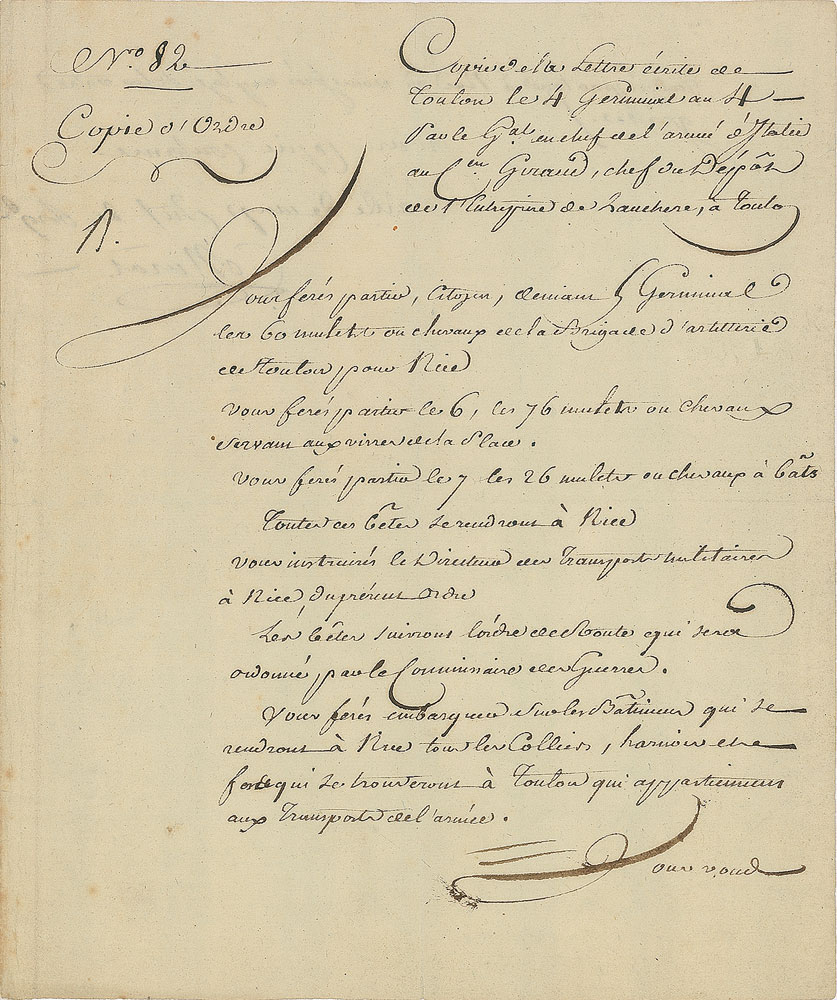 N.ro 82
Copie d'Ordre
1.
Copie de la Lettre écrite de
Toulon le 4 Germinal an 4
Par le G.al en chef de l'armé d'Italie
au C.en Giraud, chef du Dépôt
de l'Entreprise de Lanchere, a Toulo
Vous ferés partir, Citoyen, demain 5 Germinal
les 60 mulets ou chevaux de la Brigade d'artillerie
de Toulon, pour Nice
Vous ferés partir le 6, les 76 mulets ou chevaux
servant aux vivres de la Place.
Vous ferés partir le 7 les 26 mulets ou chevaux à bâts
Toutes ces bêtes se rendront à Nice
Vous instruirés le Directeur des Transports militaires
à Nice, du présent Ordre
Les bêtes suivront l'ordre de Route qui sera
ordonné, par le Commissaire des Guerres.
Vous ferés embarquer sur les Bâtimens qui se
rendront à Nice tous les Colliers, harnois et
qui se trouveront à Toulon qui appartiennent
aux Transports de l'armée.